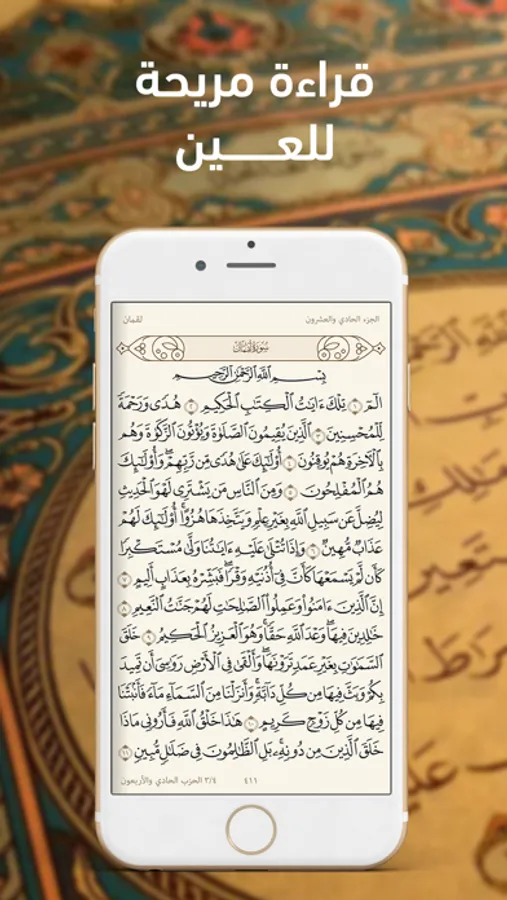 قراءة مريحة
للعـــــين
الجزء الحادي والعشرون
لقمان
سُورَةُ لُقْمَانَ
بِسْمِ ٱللَّهِ ٱلرَّحْمَٰنِ ٱلرَّحِيمِ
الٓمٓ ١ تِلْكَ ءَايَٰتُ ٱلْكِتَٰبِ ٱلْحَكِيمِ ٢ هُدًى وَرَحْمَةً
لِّلْمُحْسِنِينَ ٣ ٱلَّذِينَ يُقِيمُونَ ٱلصَّلَوٰةَ وَيُؤْتُونَ ٱلزَّكَوٰةَ وَهُم
بِٱلْءَاخِرَةِ هُمْ يُوقِنُونَ ٤ أُوْلَٰٓئِكَ عَلَىٰ هُدًى مِّن رَّبِّهِمْ ۖ وَأُوْلَٰٓئِكَ
هُمُ ٱلْمُفْلِحُونَ ٥ وَمِنَ ٱلنَّاسِ مَن يَشْتَرِى لَهْوَ ٱلْحَدِيثِ
لِيُضِلَّ عَن سَبِيلِ ٱللَّهِ بِغَيْرِ عِلْمٍ وَيَتَّخِذَهَا هُزُوًا ۚ أُوْلَٰٓئِكَ لَهُمْ
عَذَابٌ مُّهِينٌ ٦ وَإِذَا تُتْلَىٰ عَلَيْهِ ءَايَٰتُنَا وَلَّىٰ مُسْتَكْبِرًا
كَأَن لَّمْ يَسْمَعْهَا كَأَنَّ فِىٓ أُذُنَيْهِ وَقْرًا ۖ فَبَشِّرْهُ بِعَذَابٍ أَلِيمٍ ٧
إِنَّ ٱلَّذِينَ ءَامَنُوا۟ وَعَمِلُوا۟ ٱلصَّٰلِحَٰتِ لَهُمْ جَنَّٰتُ ٱلنَّعِيمِ ٨
خَٰلِدِينَ فِيهَا ۖ وَعْدَ ٱللَّهِ حَقًّا ۚ وَهُوَ ٱلْعَزِيزُ ٱلْحَكِيمُ ٩ خَلَقَ
ٱلسَّمَٰوَٰتِ بِغَيْرِ عَمَدٍ تَرَوْنَهَا ۖ وَأَلْقَىٰ فِى ٱلْأَرْضِ رَوَٰسِىَ أَن تَمِيدَ
بِكُمْ وَبَثَّ فِيهَا مِن كُلِّ دَآبَّةٍ ۚ وَأَنزَلْنَا مِنَ ٱلسَّمَآءِ مَآءً فَأَنۢبَتْنَا
فِيهَا مِن كُلِّ زَوْجٍ كَرِيمٍ ١٠ هَٰذَا خَلْقُ ٱللَّهِ فَأَرُونِى مَاذَا
خَلَقَ ٱلَّذِينَ مِن دُونِهِۦ ۚ بَلِ ٱلظَّٰلِمُونَ فِى ضَلَٰلٍ مُّبِينٍ ١١
٤١١
٣/٤ الحزب الحادي والأربعون